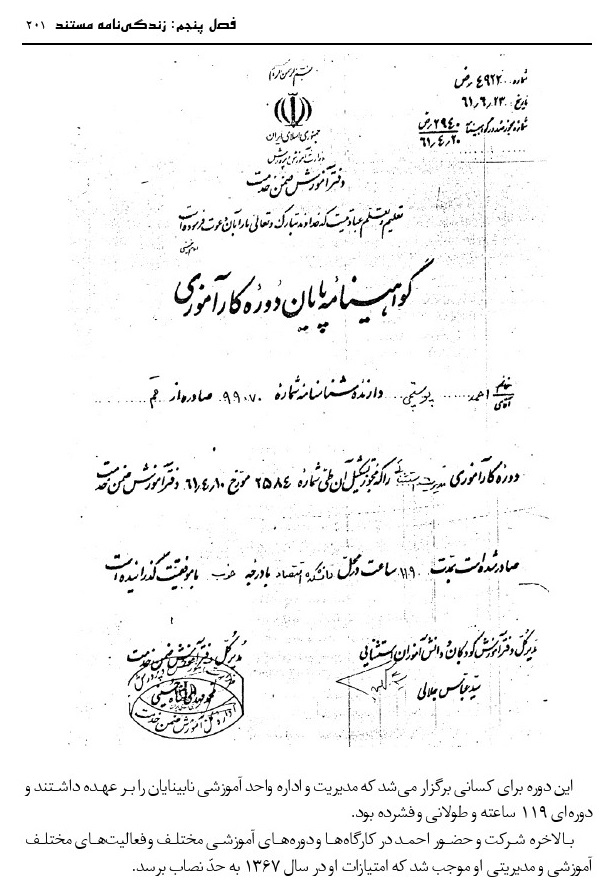 فصل پنجم: زندگی‌نامه مستند ۲۰۱
شماره ۴۹۲۲رض
تاریخ ۶۱٫۶٫۲۳
۲۹۴۰رض
۶۱٫۴٫۲۰
جمهوری اسلامی ایران
وزارت آموزش و پرورش
دفتر آموزش ضمن خدمت
تعلیم و تعلم عبادتیست که خداوند تبارک و تعالی ما را بآن دعوت فرموده است
گواهینامه پایان دوره کارآموزی
خانم
آقای احمد یوسفی دارنده شناسنامه شماره ۹۹۰۷۰ صادره از قم
دوره کارآموزی مدیریت را که مجوز تشکیل آن طی شماره ۲۵۸۴ مورخ ۶۱٫۴٫۱۰ دفتر آموزش ضمن خدمت
صادر شده است بمدت ۱۱۹ ساعت در محل دانشکده اقتصاد با درجه خوب با موفقیت گذرانیده است
مدیر کل دفتر آموزش کودکان و دانش‌آموزان استثنائی
سید عباس جلالی
مدیر کل دفتر آموزش ضمن خدمت
اداره کل آموزش ضمن خدمت
این دوره برای کسانی برگزار می‌شد که مدیریت و اداره واحد آموزشی نابینایان را بر عهده داشتند و
دوره‌ای ۱۱۹ ساعته و طولانی و فشرده بود.
بالاخره شرکت و حضور احمد در کارگاه‌ها و دوره‌های آموزشی مختلف و فعالیت‌های مختلف
آموزشی و مدیریتی او موجب شد که امتیازات او در سال ۱۳۶۷ به حدّ نصاب برسد.